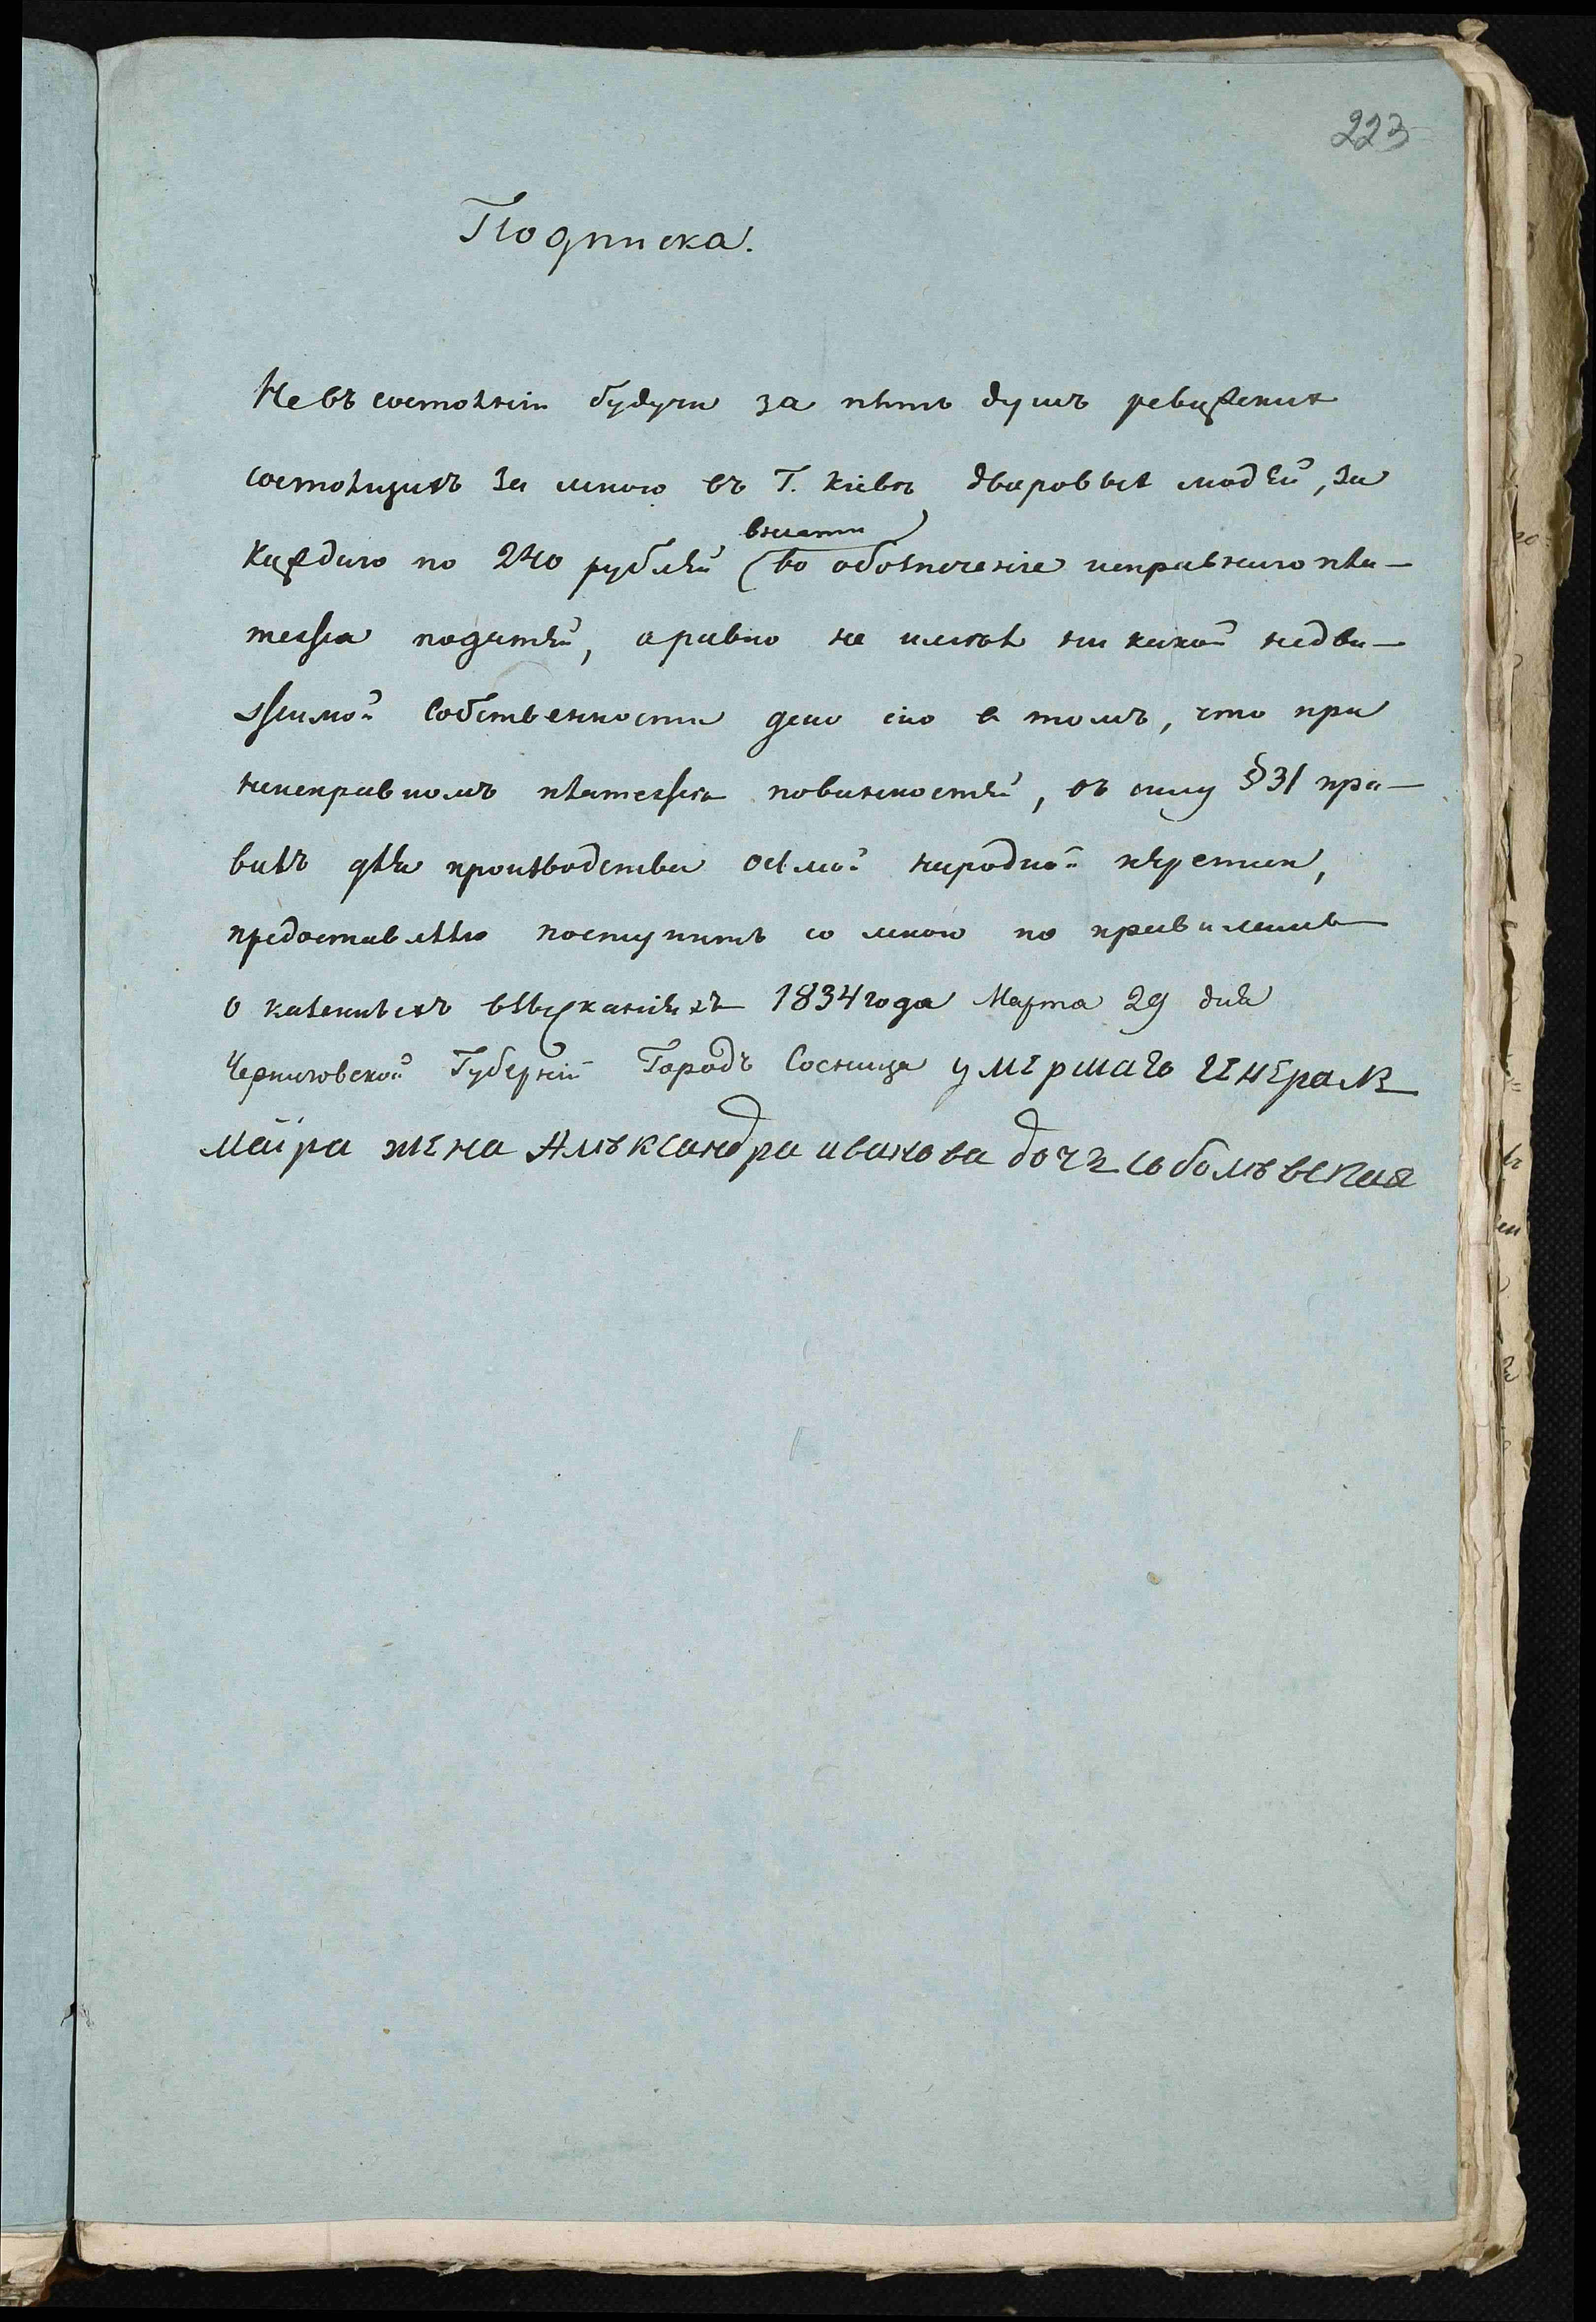 223
Подписка.
Не въ состояніи будучи за пять душъ ревижскихъ
состоящихъ за мною въ Г. Кіевѣ дворовыхъ людей, за
внести
каждаго по 240 рублей (во обезпеченіе исправнаго пла-
тежа податей, а равно не имѣя ни какой недви-
жимой собственности даю сію въ томъ, что при
неисправномъ платежѣ повинностей, въ силу §31 пра-
вилъ для производства осьмой народной переписи,
предоставляю поступить со мною по правиламъ
о казенныхъ взысканіяхъ 1834 года Марта 29 дня
Черниговской Губерніи Городъ Сосница умершаго генералъ
маіра жена Алѣксандра иванова дочъ соболѣвская